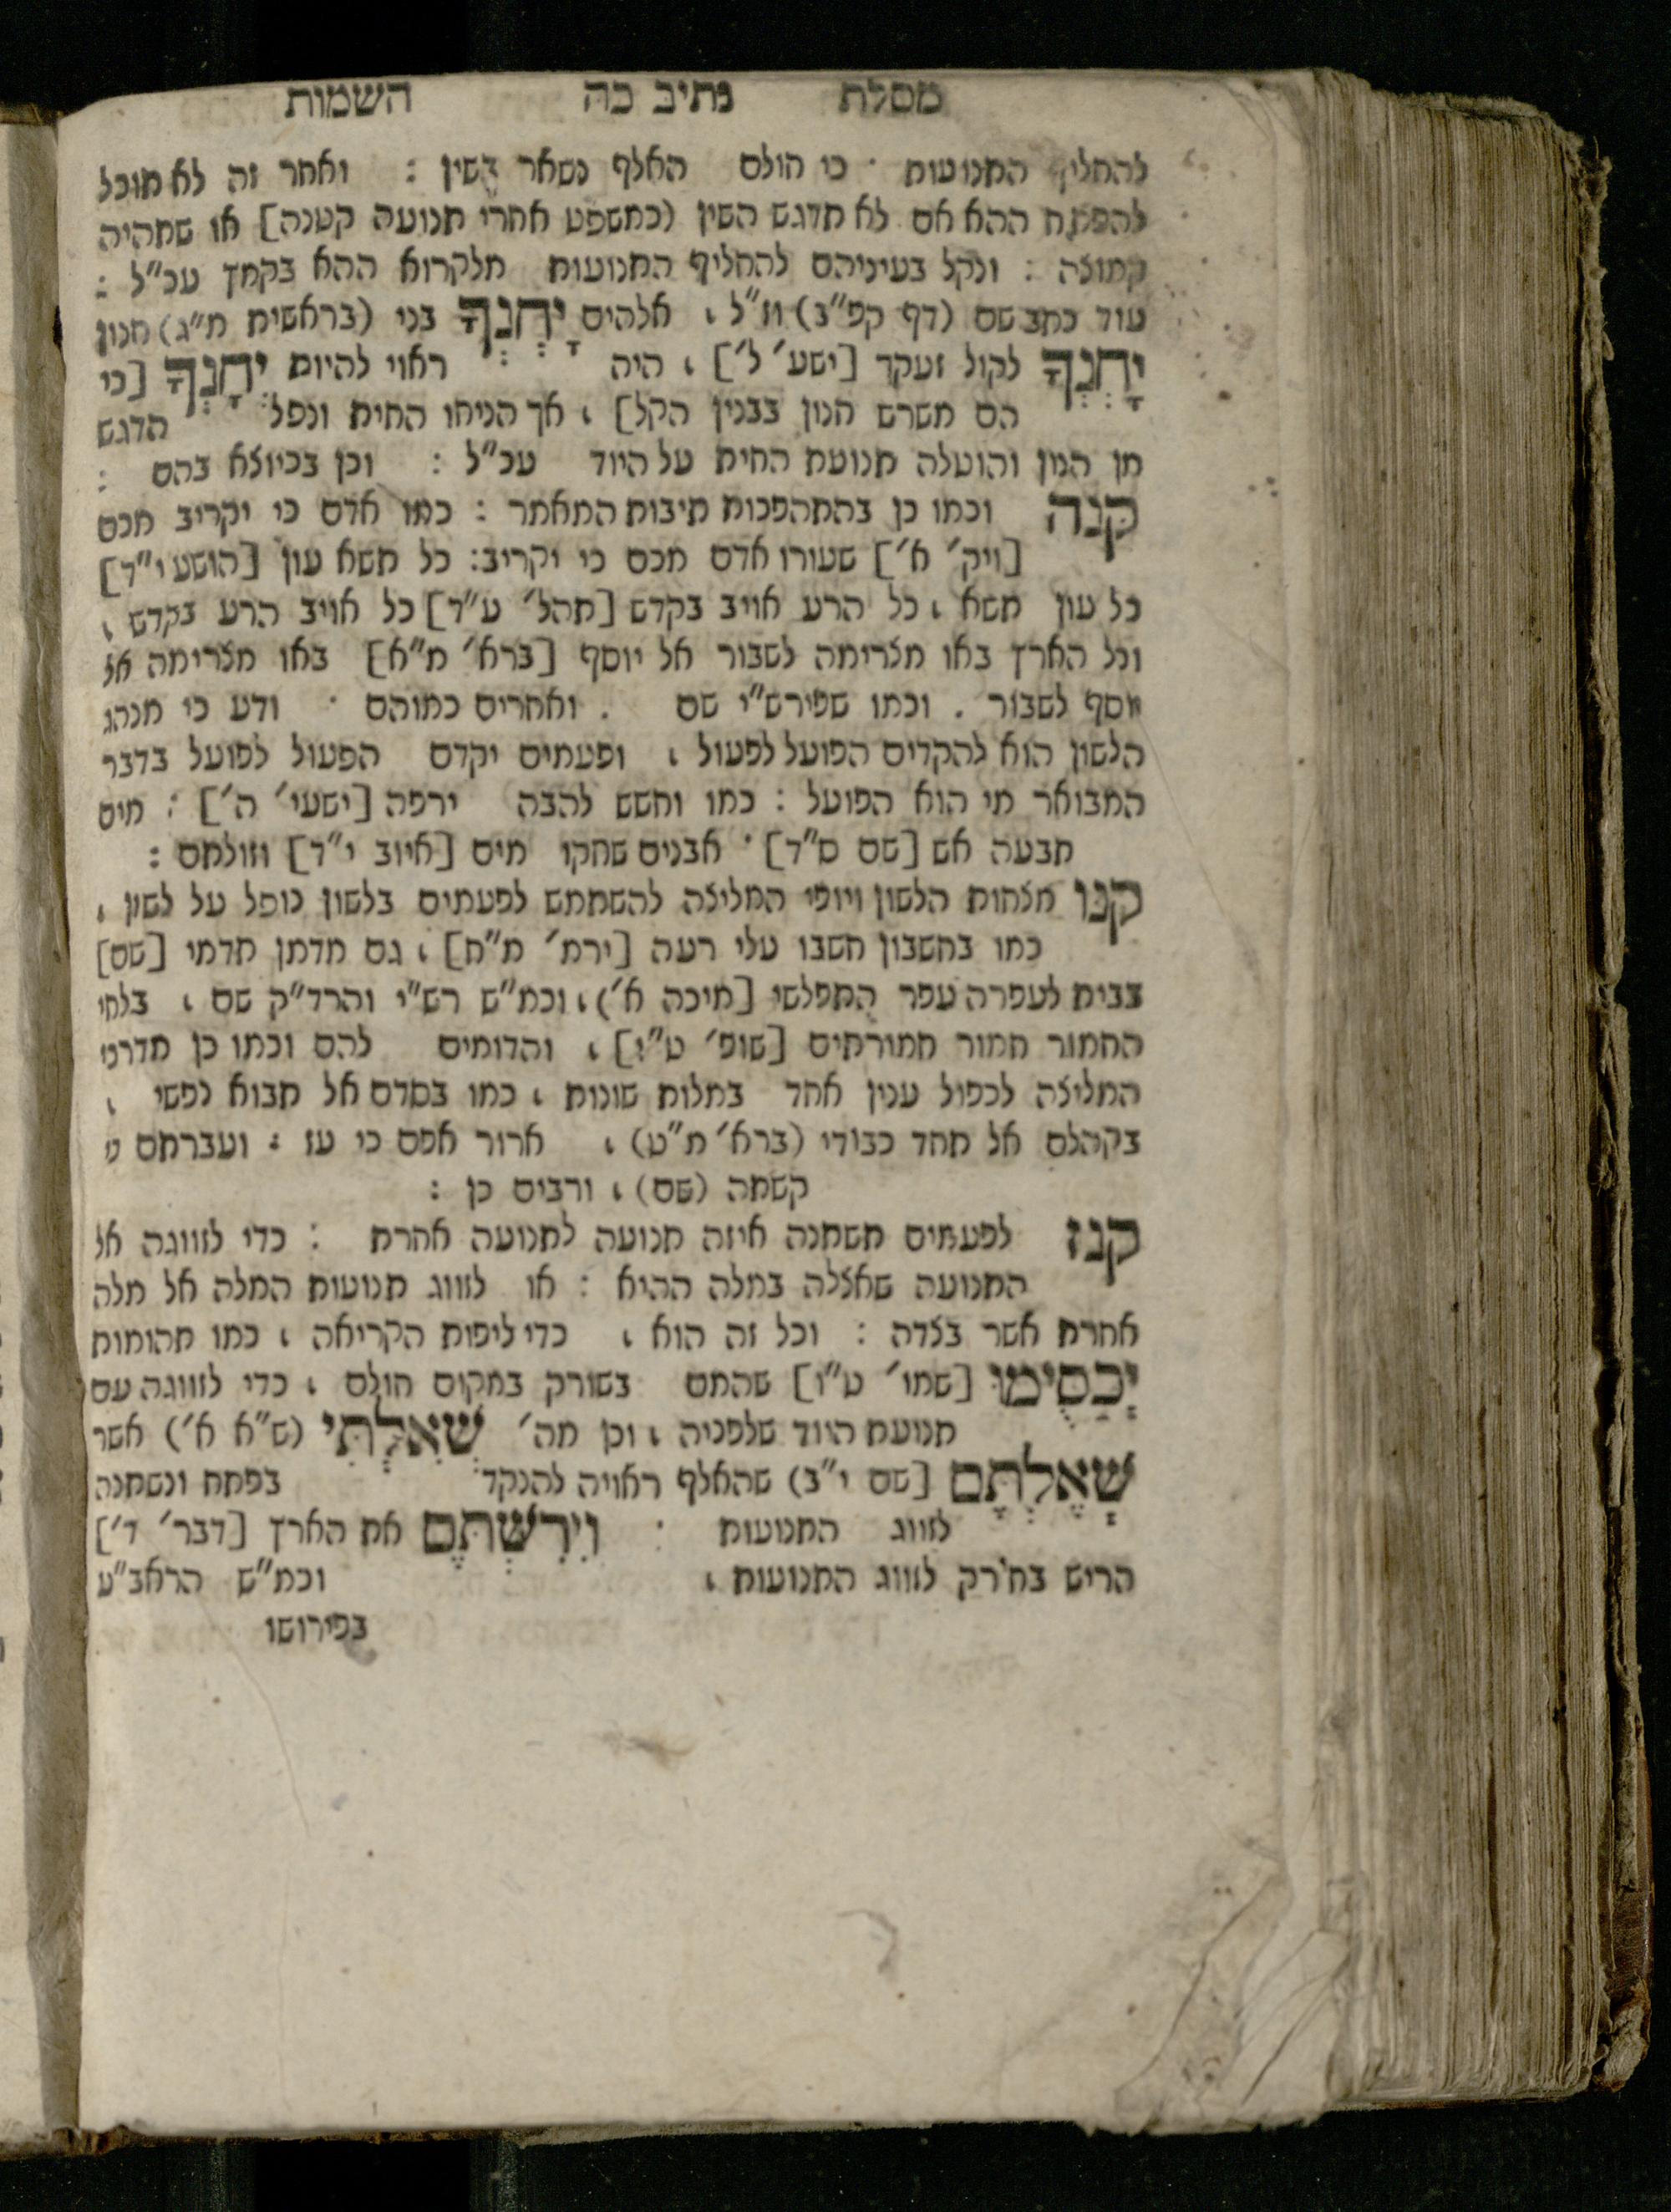 מסלת נתיב כה השמות
להחליף התנועות · כי חולם האלף נשאר בשין : ואחר זה לא תוכל
להפתח ההא אם לא תדגש השין (כמשפט אחרי תנועה קטנה] או שתהיה
קמוצה : ונקל בעיניהם להחליף התנועות מלקרוא ההא בקמץ עכ"ל :
עוד כתב שם (דף קפ"ב) וז"ל , אלהים יָחְנְךָ בני (בראשית מ"ג) חנון
יָחְנְךָ לקול זעקך [ישע' ל'] , היה ראוי להיות יְחָנְךָ [כי
הם משרש חנון בבנין הקל] , אך הניחו החית ונפל הדגש
מן הנון והועלה תנועת החית על היוד עכ"ל : וכן בכיוצא בהם :
קנה וכמו כן בהתהפכות תיבות המאמר : כמו אדם כי יקריב מכם
[ויק' א'] שעורו אדם מכם כי יקריב: כל תשא עון [הושע י"ד]
כל עון תשא , כל הרע אויב בקדש [תהל' ע"ד] כל אויב הרע בקדש ,
וכל הארץ באו מצרימה לשבור אל יוסף [ברא' מ"א] באו מצרימה אל
יוסף לשבור . וכמו שפירש"י שם . ואחרים כמוהם · ודע כי מנהג
הלשון הוא להקדים הפועל לפעול , ופעמים יקדם הפעול לפועל בדבר
המבואר מי הוא הפועל : כמו וחשש להבה ירפה [ישעי' ה'] : מים
תבעה אש [שם ס"ד] · אבנים שחקו מים [איוב י"ד] וזולתם :
קנו מצחות הלשון ויופי המליצה להשתמש לפעמים בלשון נופל על לשון ,
כמו בחשבון חשבו עלי רעה [ירמ' מ"ח] , גם מדמן תדמי [שם]
בבית לעפרה עפר התפלשי [מיכה א') , וכמ"ש רש"י והרד"ק שם , בלחי
החמור חמור חמורתים [שופ' ט"ו] , והדומים להם וכמו כן מדרכי
המליצה לכפול ענין אחד במלות שונות , כמו בסדם אל תבוא נפשי ,
בקהלם אל תחד כבודי (ברא' מ"ט) , ארור אפם כי עז : ועברתם
קשתה (שם) , ורבים כן :
קנז לפעמים תשתנה איזה תנועה לתנועה אחרת : כדי לזווגה אל
התנועה שאצלה במלה ההיא : או לזווג תנועות המלה אל מלה
אחרת אשר בצדה : וכל זה הוא , כדי ליפות הקריאה , כמו תהומות
יְכַסְיֻמוּ [שמו' ט"ו] שהמם בשורק במקום חולם , כדי לזווגה עם
תנועת היוד שלפניה , וכן מה' שְׁאִלְתִּי (ש"א א') אשר
שָׁאֶלְתָּם [שם י"ב) שהאלף ראויה להנקד בפתח ונשתנה
לזווג התנועות : וִירִשְׁתֶּם את הארץ [דבר' ד']
הריש בחירק לזווג התנועות , וכמ"ש הראב"ע
בפירושו